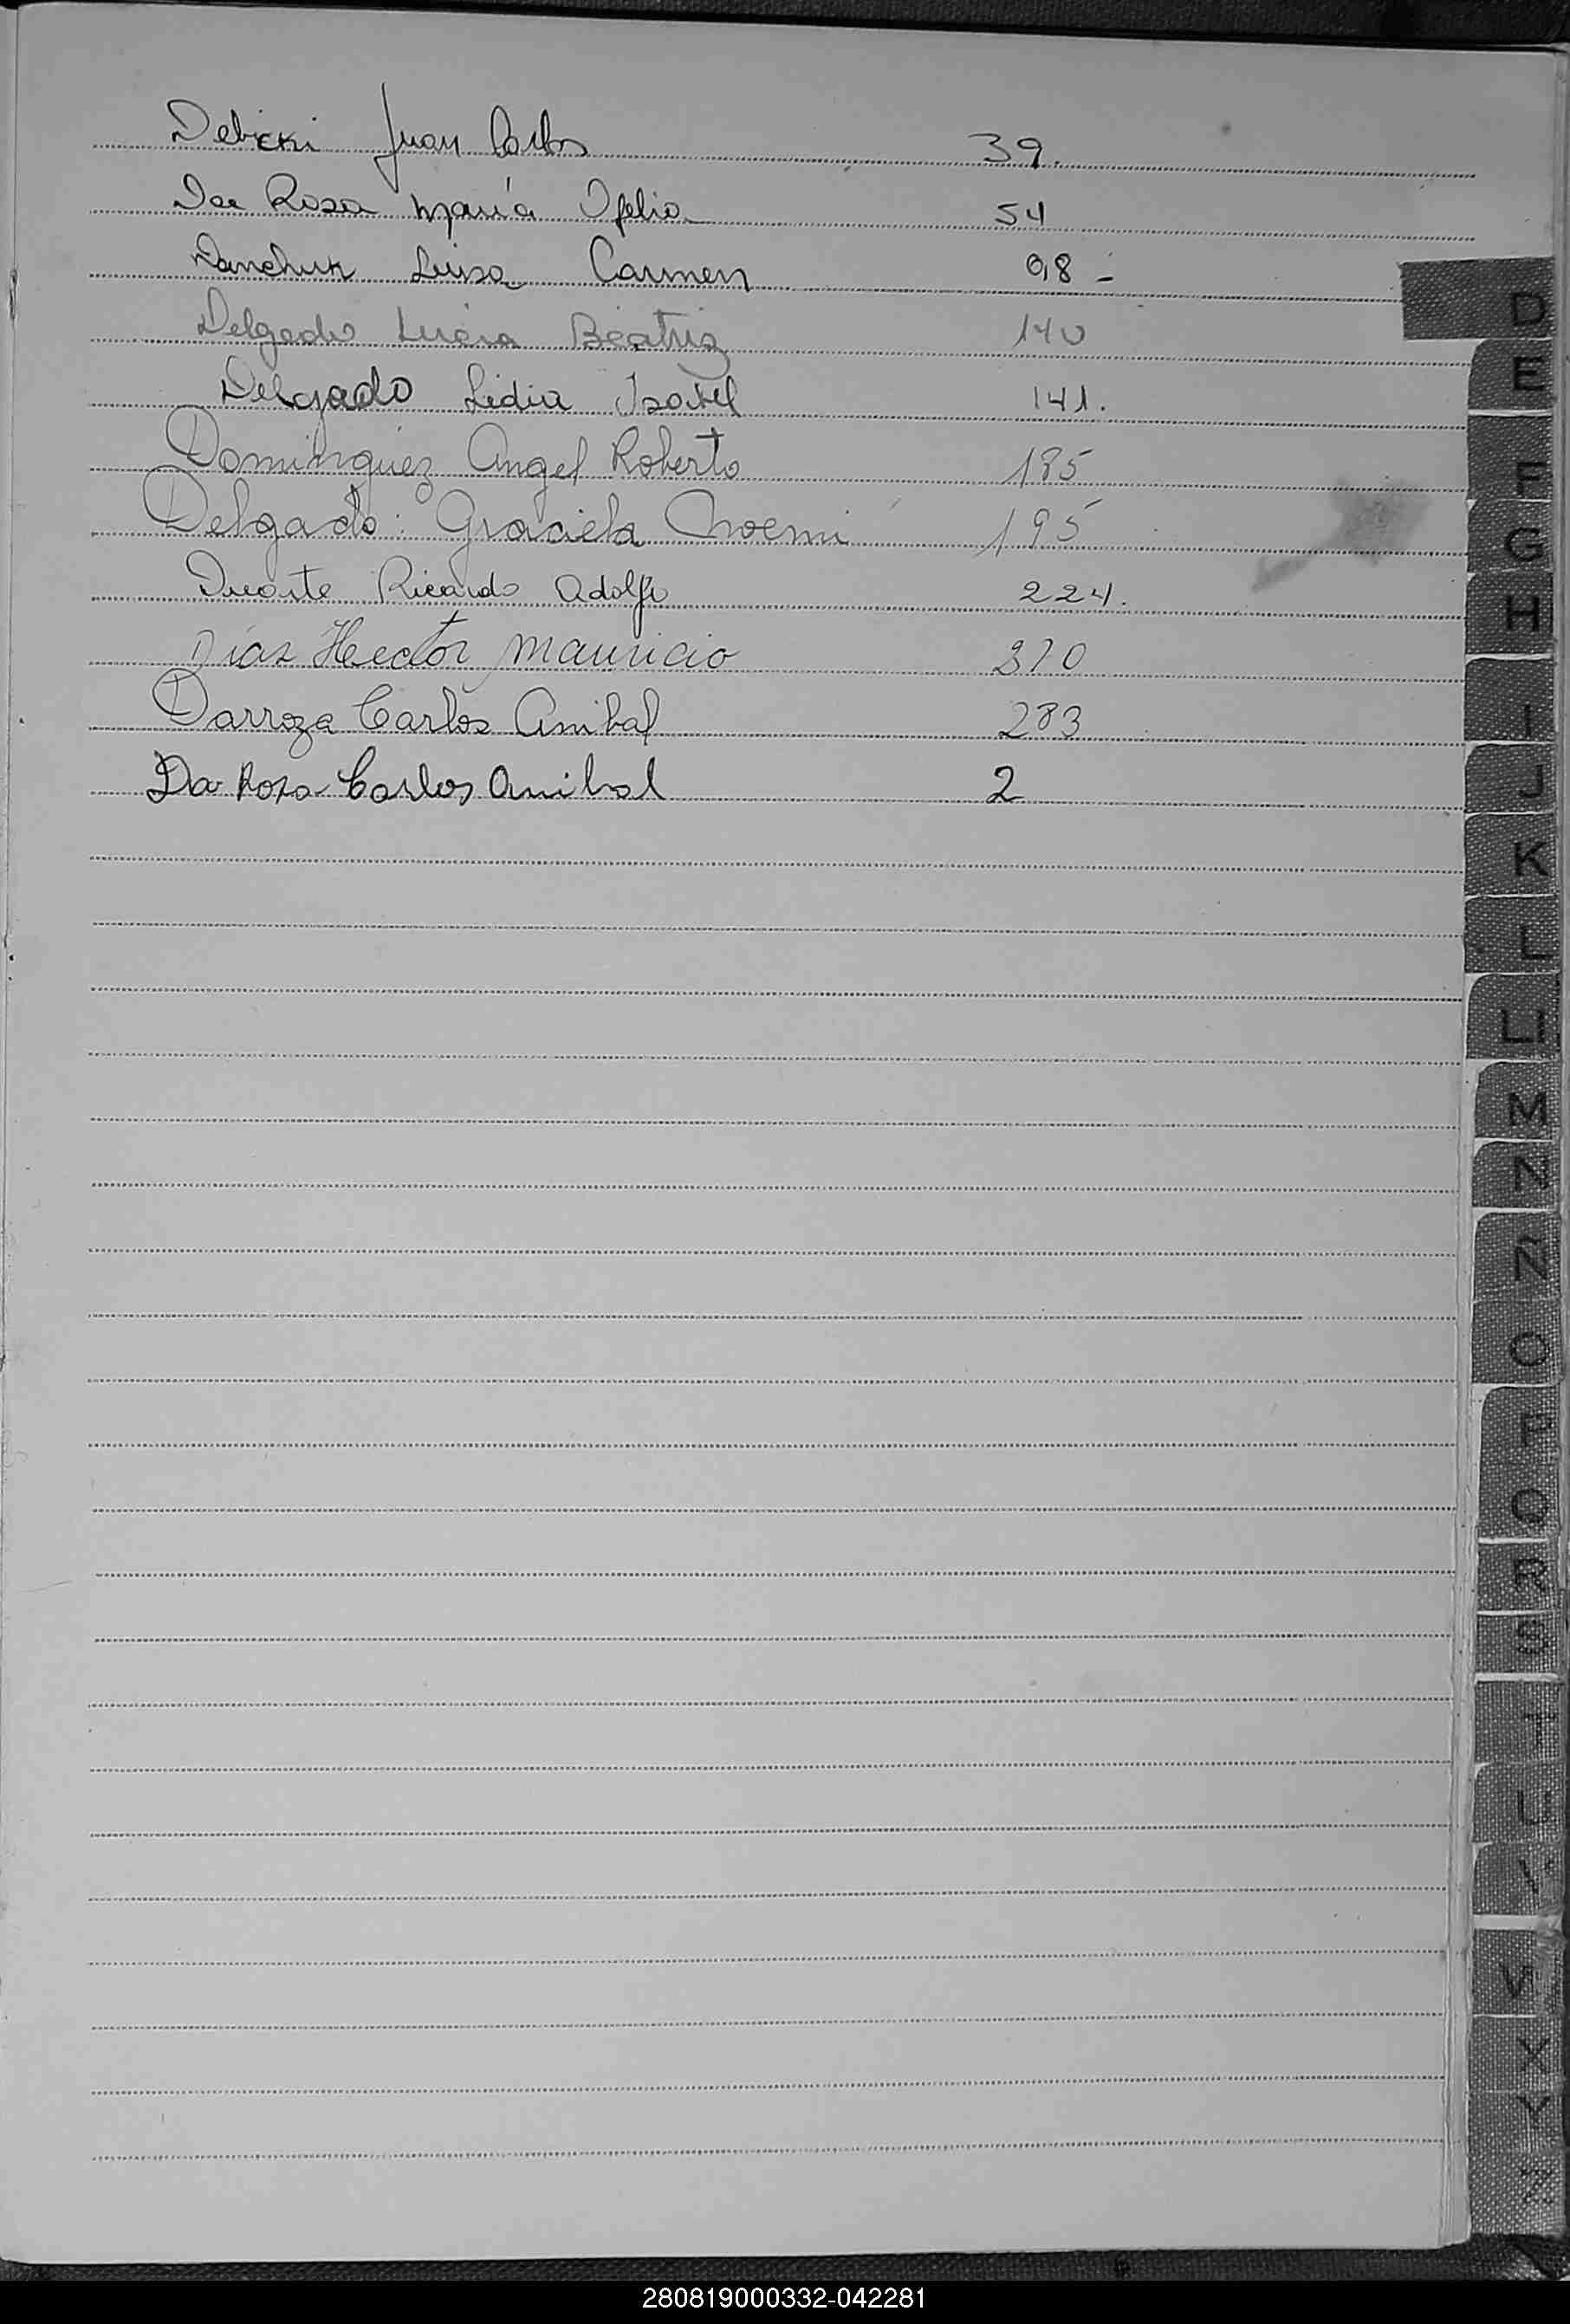 Debicki Juan Carlos 39.
Da Rosa María Ofelia 54
Danchuk Luisa Carmen 98 -
Delgado Lucia Beatriz 140
Delgado Lidia Isabel 141.
Dominguez Angel Roberto 185
Delgado: Graciela Noemi 195
Duarte Ricardo Adolfo 224.
Díaz Hector Mauricio 270
Darroza Carlos Anibal 283
Da Rosa Carlos Anibal 2
D
E
F
G
H
I
J
K
L
LL
M
N
Ñ
O
P
Q
R
S
T
U
V
W
X
Y
Z
280819000332-042281